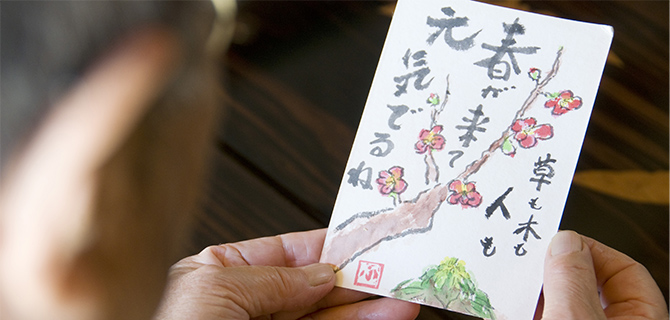 春が来て
元気でるね
草も木も
人も